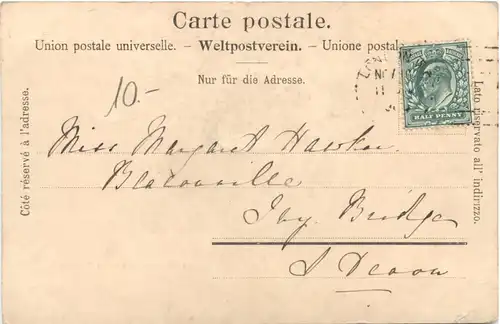 Carte postale.
Union postale universelle. – Weltpostverein. – Unione postale
Nur für die Adresse.
Côté réservé à l'adresse.
Lato riservato all' indirizzo.
10.-
HALF PENNY
Miss Margaret Hawker
Beaconville
Ivy Bridge
S Devon